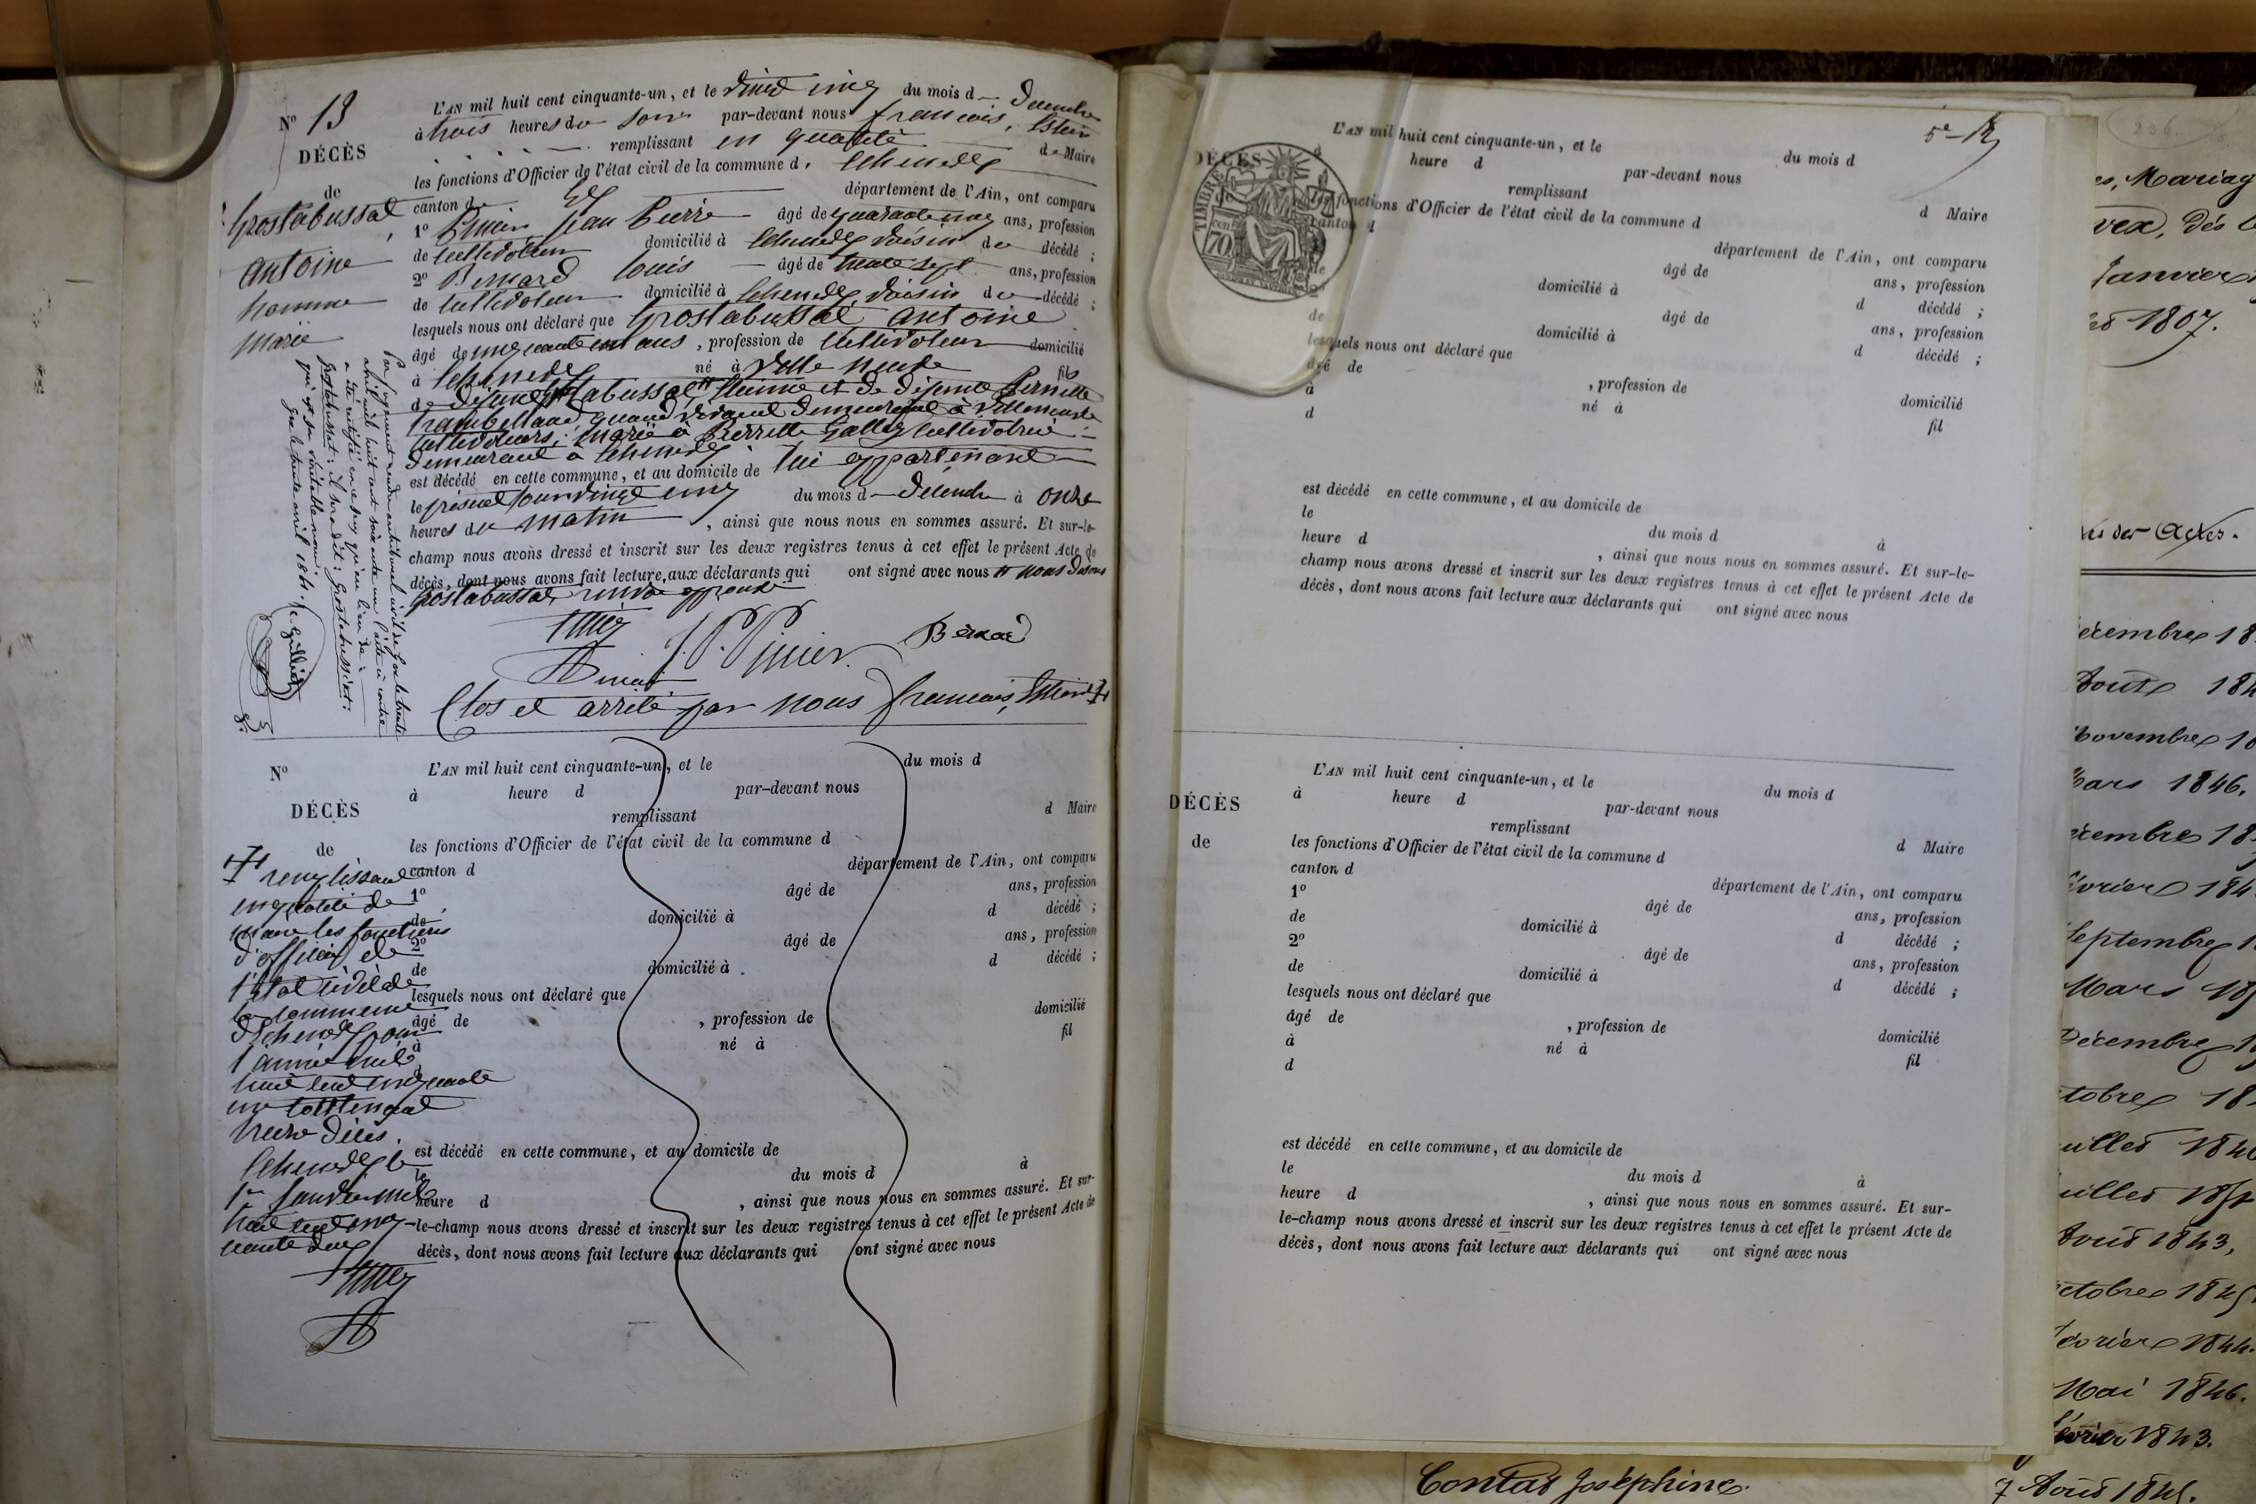 N° 13
DÉCÈS
de
Grostabussat
antoine
homme
marié
L'AN mil huit cent cinquante-un, et le vingt cinq du mois d Décembre
à trois heures du soir par-devant nous françois,
remplissant en qualité de Maire
les fonctions d'Officier de l'état civil de la commune d. Echenevex
canton de Gex département de l'Ain, ont comparu
1° Prinier Jean Pierre âgé de quarante cinq ans, profession
de cultivateur domicilié à Echenevex voisin du décédé ;
2° Bernard Louis âgé de trente sept ans, profession
de cultivateur domicilié à Echenevex voisin du décédé ;
lesquels nous ont déclaré que Grostabussat antoine
âgé de cinquante ans, profession de cultivateur domicilié
à Echenevex né à Ville neuve fils
de défunt Grostabussat Etienne et de défunte Pernette
quand vivant demeurant à Villeneuve
cultivateurs, marié à Pierrette cultivatrice
demeurant à Echenevex
est décédé en cette commune, et au domicile de lui appartenant
le présent jour vingt cinq du mois d Décembre à onze
heures du matin, ainsi que nous nous en sommes assuré. Et sur-le-
champ nous avons dressé et inscrit sur les deux registres tenus à cet effet le présent Acte de
décès, dont nous avons fait lecture aux déclarants qui ont signé avec nous nous disons
Grostabussat approuvé
J. P. Prinier
Bernard
Clos et arrêté par nous françois,
Par jugement rendu au tribunal civil de Gex le trente
avril mil huit cent soixante un l'acte ci contre
a été rectifié en ce sens qu'au lieu de :
Grostabussat, il sera dit : Grostabussiat :
qui est son véritable nom.
Gex le trente avril 1861.
N°
DÉCÈS
de
L'AN mil huit cent cinquante-un, et le du mois d
à heure d par-devant nous
remplissant d Maire
les fonctions d'Officier de l'état civil de la commune d
canton d département de l'Ain, ont comparu
1° âgé de ans, profession
de domicilié à d décédé ;
2° âgé de ans, profession
de domicilié à d décédé ;
lesquels nous ont déclaré que
âgé de , profession de domicilié
à né à fil
d
est décédé en cette commune, et au domicile de
le du mois d à
heure d , ainsi que nous nous en sommes assuré. Et sur-
le-champ nous avons dressé et inscrit sur les deux registres tenus à cet effet le présent Acte de
décès, dont nous avons fait lecture aux déclarants qui ont signé avec nous
remplissant
en qualité de
maire les fonctions
d'officier de
l'état civil de
la commune
d'Echenevex pour
l'année mil
huit cent cinquante
un contenant
treize décès.
Echenevex le
1er Janvier mil
huit cent cinq-
uante deux
5e
TIMBRE
70
DÉCÈS
L'AN mil huit cent cinquante-un, et le du mois d
à heure d par-devant nous
remplissant d Maire
les fonctions d'Officier de l'état civil de la commune d
canton d département de l'Ain, ont comparu
âgé de ans, profession
de domicilié à d décédé ;
2° âgé de ans, profession
de domicilié à d décédé ;
lesquels nous ont déclaré que
âgé de , profession de domicilié
à né à fil
d
est décédé en cette commune, et au domicile de
le du mois d à
heure d , ainsi que nous nous en sommes assuré. Et sur-le-
champ nous avons dressé et inscrit sur les deux registres tenus à cet effet le présent Acte de
décès, dont nous avons fait lecture aux déclarants qui ont signé avec nous
DÉCÈS
de
L'AN mil huit cent cinquante-un, et le du mois d
à heure d par-devant nous
remplissant d Maire
les fonctions d'Officier de l'état civil de la commune d
canton d département de l'Ain, ont comparu
1° âgé de ans, profession
de domicilié à d décédé ;
2° âgé de ans, profession
de domicilié à d décédé ;
lesquels nous ont déclaré que
âgé de , profession de domicilié
à né à fil
d
est décédé en cette commune, et au domicile de
le du mois d à
heure d , ainsi que nous nous en sommes assuré. Et sur-
le-champ nous avons dressé et inscrit sur les deux registres tenus à cet effet le présent Acte de
décès, dont nous avons fait lecture aux déclarants qui ont signé avec nous
286.
es, Mariag
vex, Dés le
Janvier
1807.
des Actes.
écembre 18
Août 184
Novembre 18
Mars 1846.
écembre 18
évrier 184
Septembre 1
Mars 18
Décembre 1
tobre 18
uillet 184
uillet 18
Août 1843,
ctobre 1845
évrier 1844.
Mai 1846.
évrier 1843.
Contat Joséphine.
7 Août 1845.